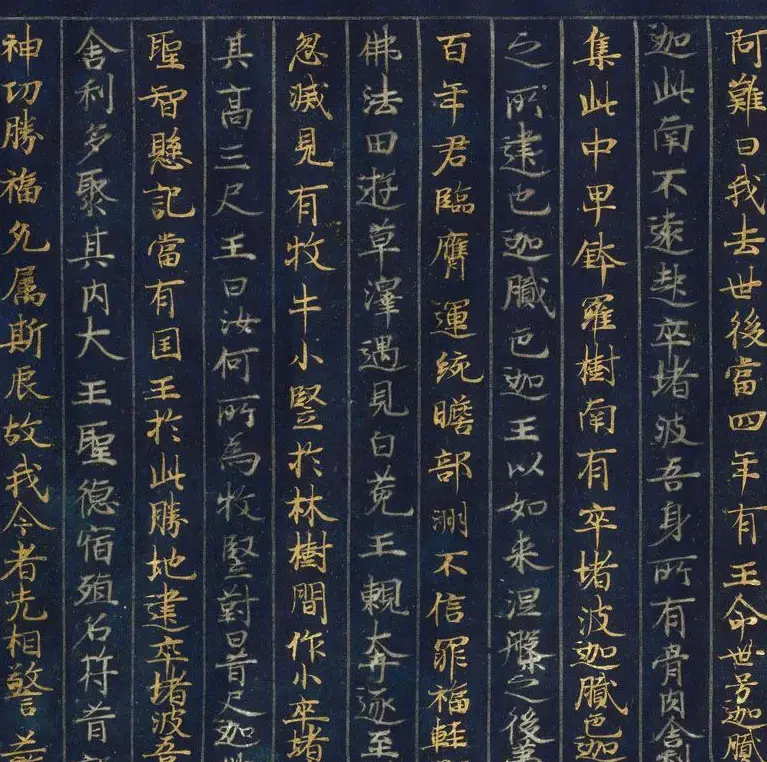 阿難曰我去世後當四年有王命世号迦膩
迦此南不遠起卒堵波吾身所有骨肉舍利
集此中卑鉢羅樹南有卒堵波迦膩色迦
之所建也迦膩色迦王以如来涅槃之後第
百年君臨膺運統瞻部洲不信罪福輕
佛法田遊草澤遇見白菟王親奔逐至
忽滅見有牧牛小竪於林樹間作小卒堵
其高三尺王曰汝何所為牧竪對曰昔尺迦
聖智懸記當有国王於此勝地建卒堵波吾
舍利多聚其内大王聖德宿殖名符昔
神功勝福允属斯辰故我今者先相警